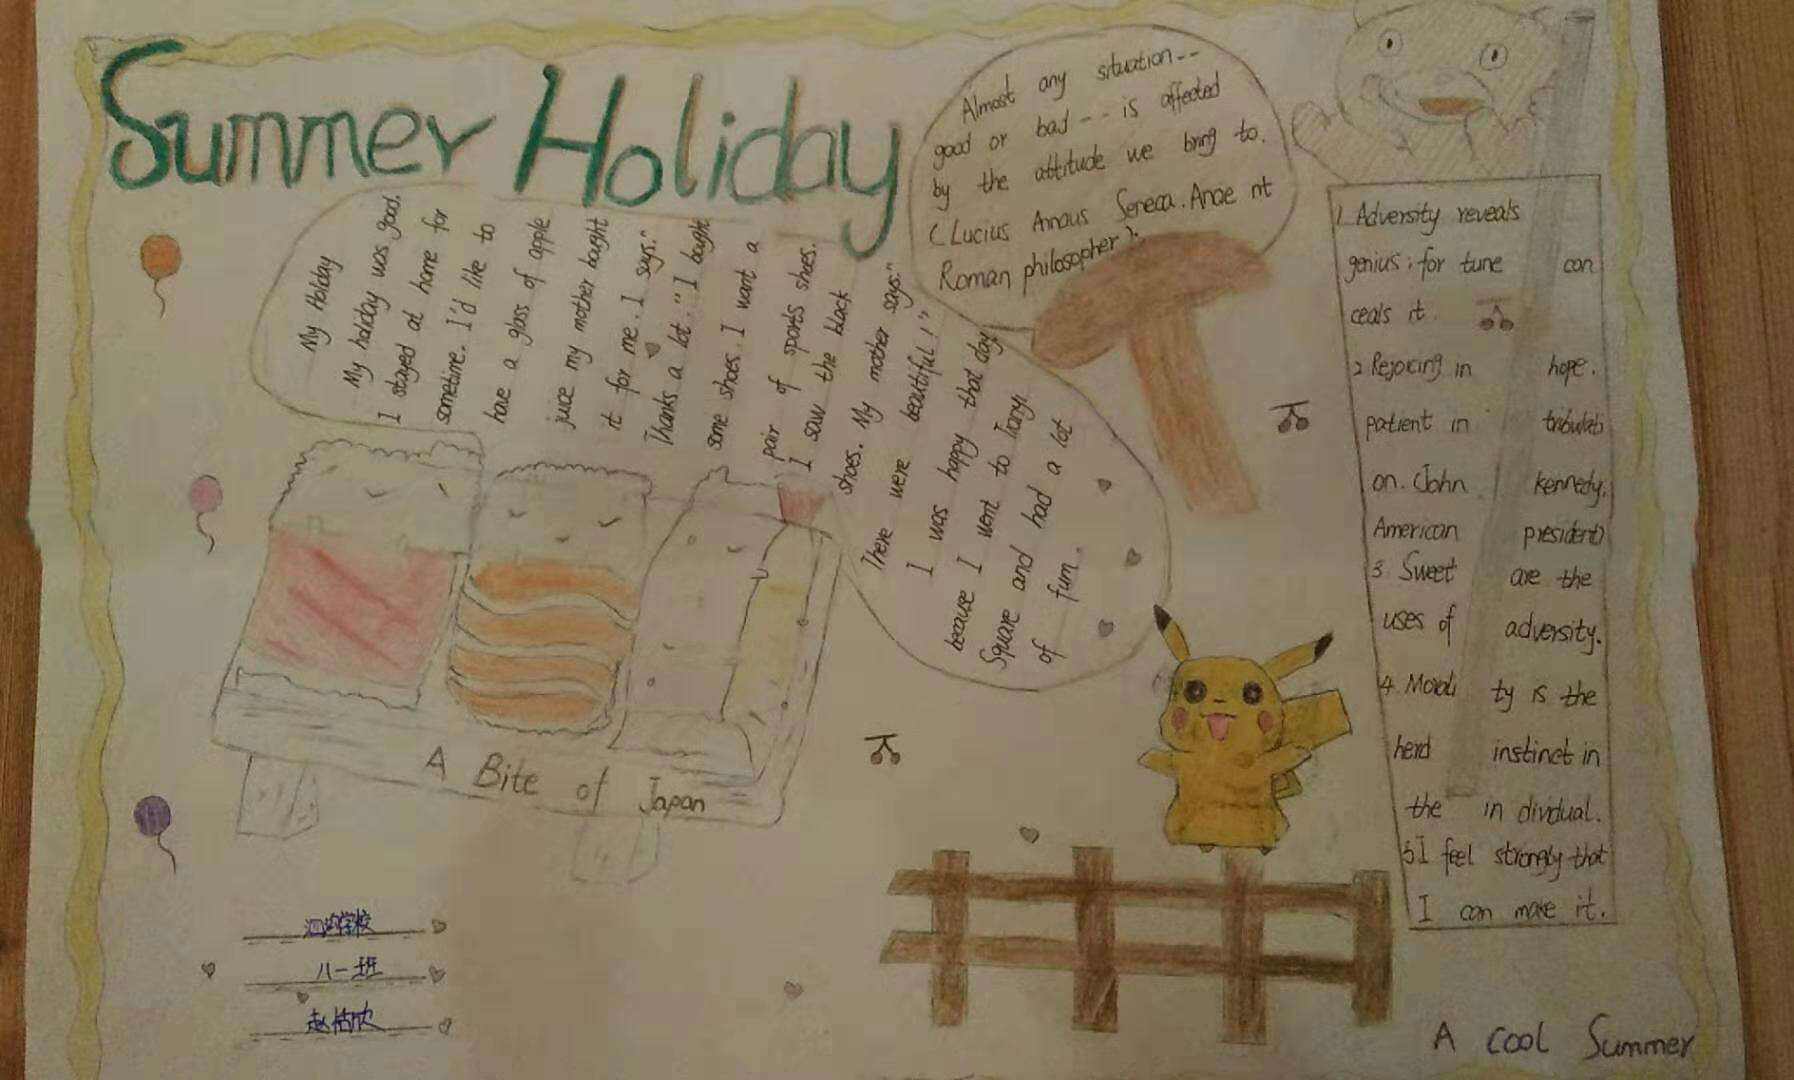 Summer Holiday
My Holiday
My holiday was good.
I stayed at home for
sometime. I'd like to
have a glass of apple
juice my mother bought
it for me. I says:"
Thanks a lot." I bought
some shoes. I want a
pair of sports shoes.
I saw the black
shoes. My mother says:"
There were beautiful!"
I was happy that day
because I went to Tianyi
Square and had a lot
of fum.
Almost any situation--
good or bad-- is affected
by the attitude we bring to.
(Lucius Annaus Seneca. Ancie nt
Roman philosopher).
1. Adversity reveals
genius; for tune con
ceals it.
2 Rejoicing in hope.
patient in tribulati
on. (John kennedy.
American president)
3. Sweet are the
uses of adversity.
4. Morali ty is the
herd instinct in
the in divdual.
5 I feel strongly that
I can make it.
A Bite of Japan
学校
八一班
赵
A cool Summer